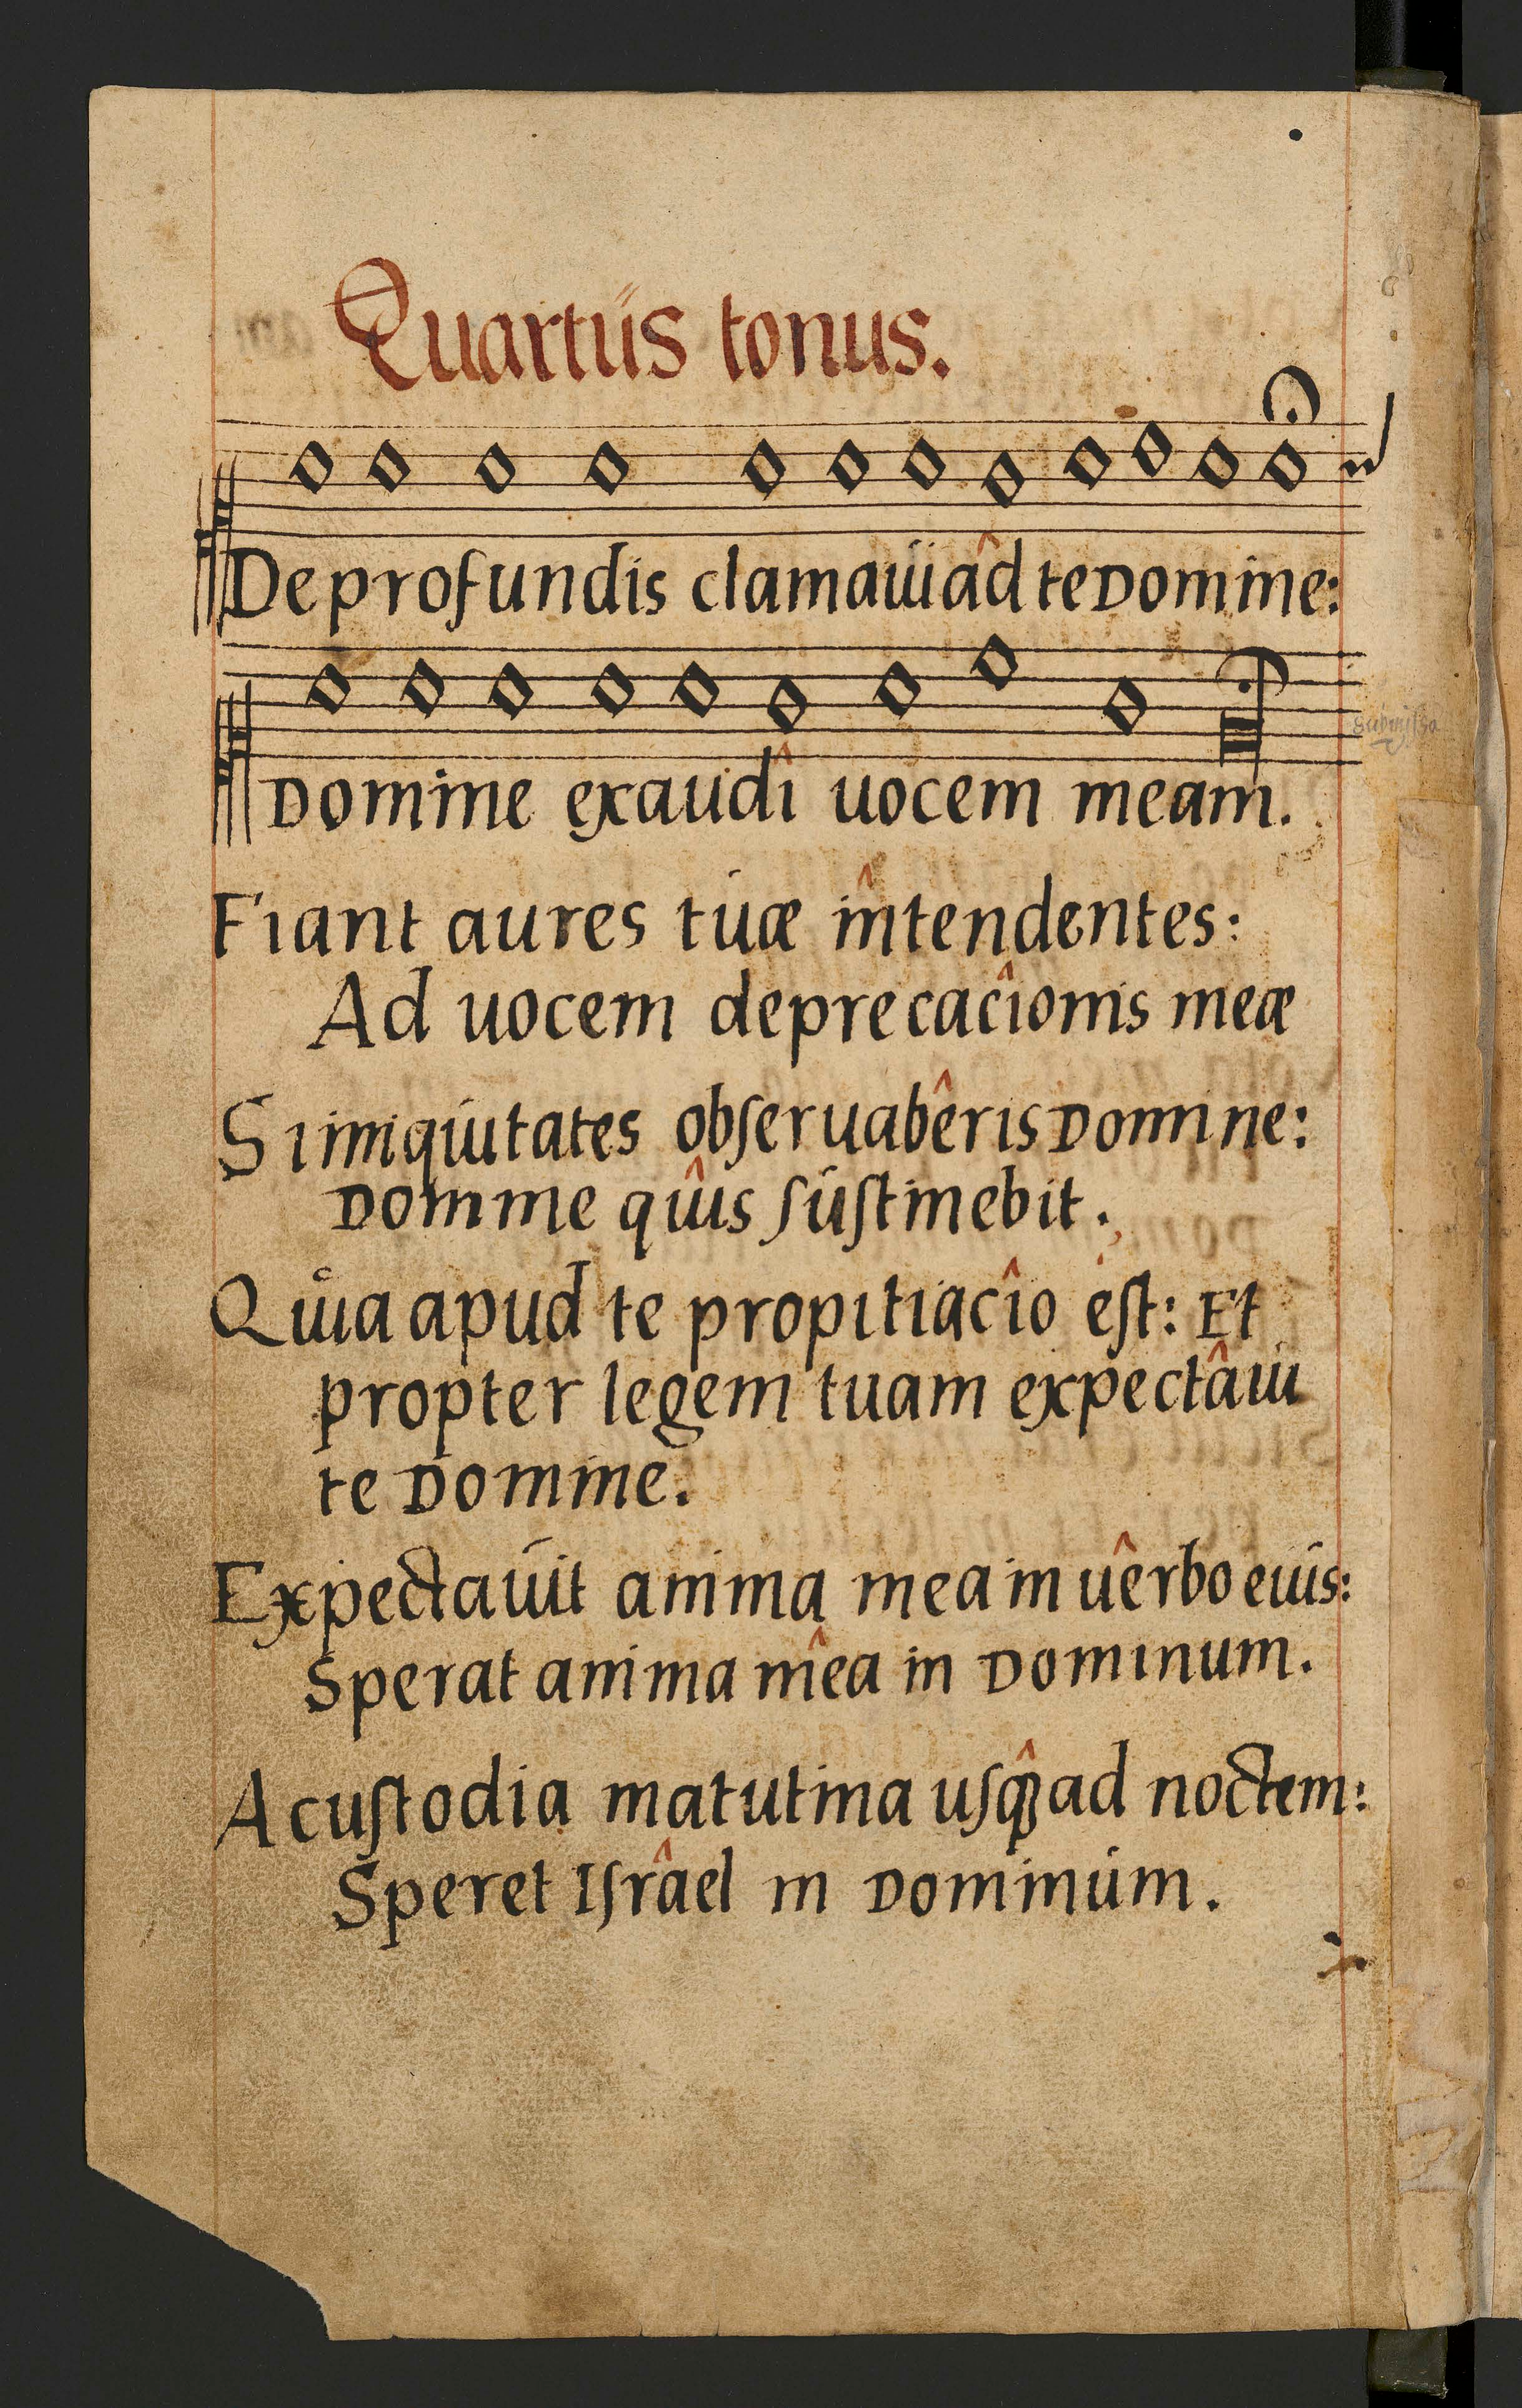 Quartus tonus.
De profundis clamaui ad te Domine:
Domine exaudi uocem meam.
Fiant aures tuæ intendentes:
Ad uocem deprecacionis meæ
Si iniquitates obſeruaberis Domine:
Domine quis ſuſtinebit.
Quia apud te propitiacio eſt: Et
propter legem tuam expectaui
te Domine.
Expectauit anima mea in uerbo eius:
Sperat anima mea in Dominum.
A cuſtodia matutina uſqꝫ ad noctem:
Speret Iſrael in Dominum.